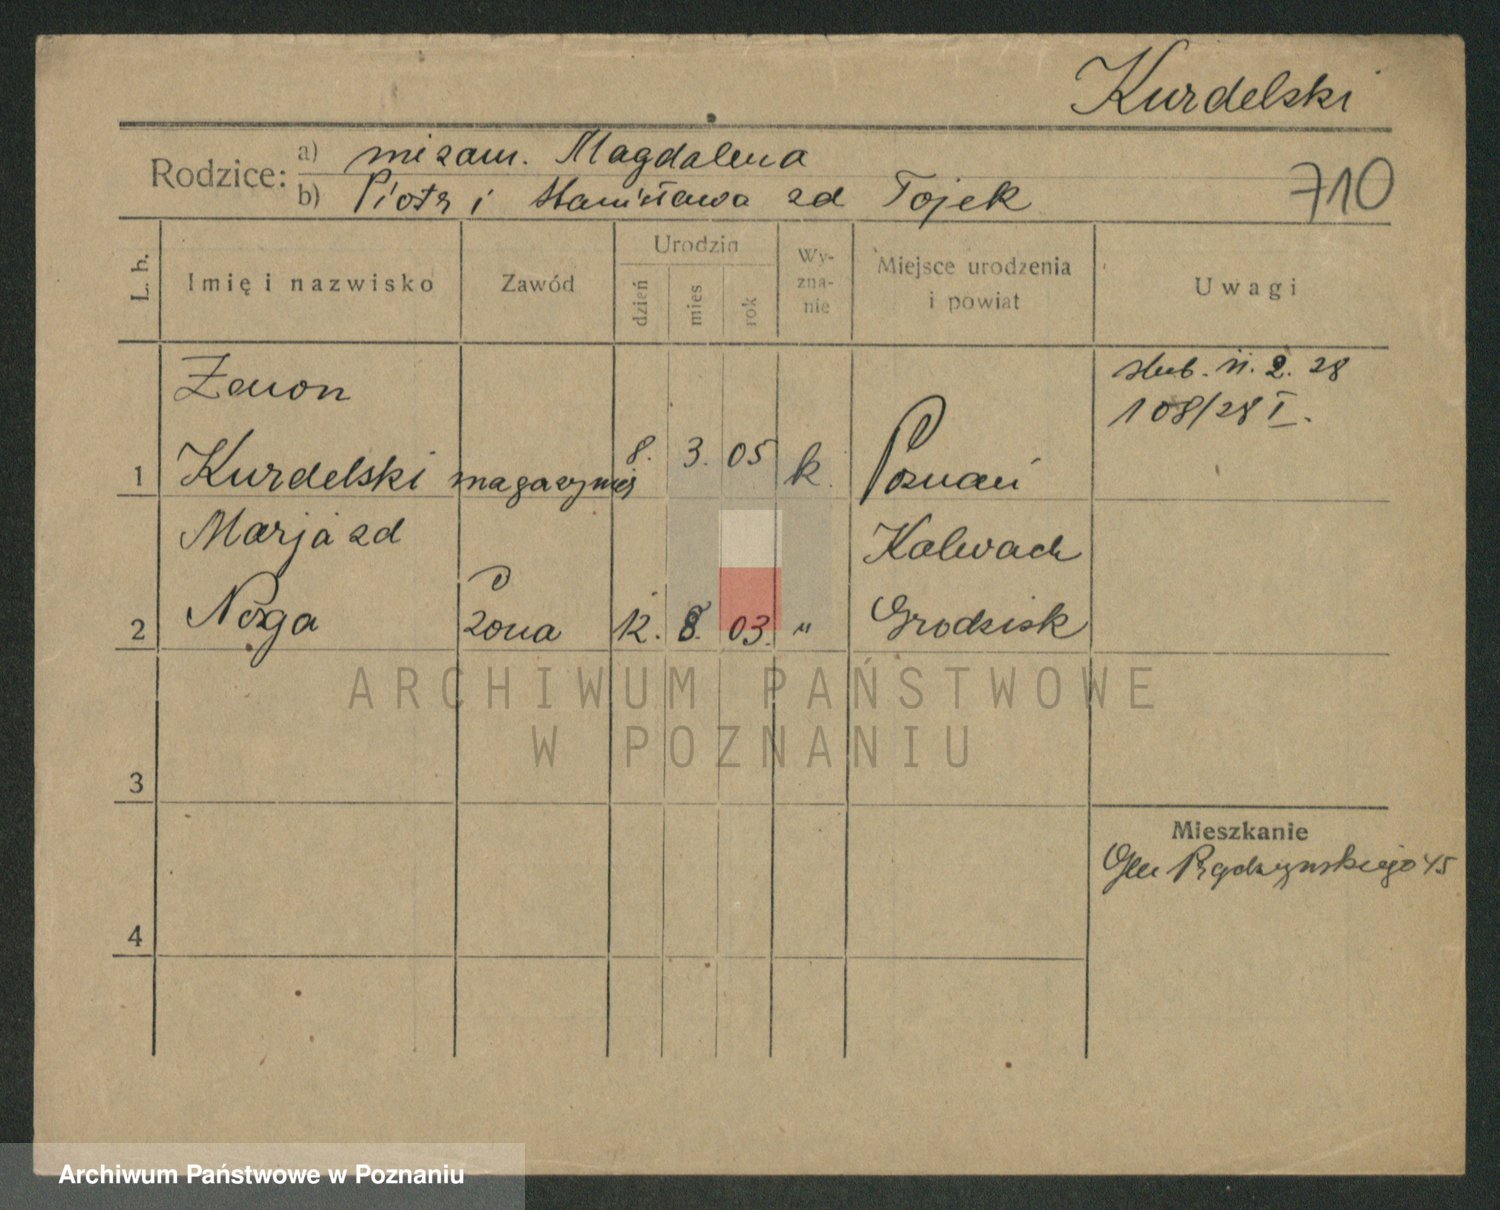 Kurdelski
Rodzice: a) niezam. Magdalena
b) Piotr i Stanisława zd Tojek
710
L. b. Imię i nazwisko Zawód Urodzin Wy-zna-nie Miejsce urodzenia i powiat Uwagi
dzień mies. rok
Zenon
ślub. 11. 2. 28
108/28 I.
1 Kurdelski 8. 3. 05 k. Poznań
Marja zd Kalwach
2 Noga żona 12. 8. 03. " Grodzisk
ARCHIWUM PAŃSTWOWE
W POZNANIU
3
Mieszkanie
45
4
Archiwum Państwowe w Poznaniu